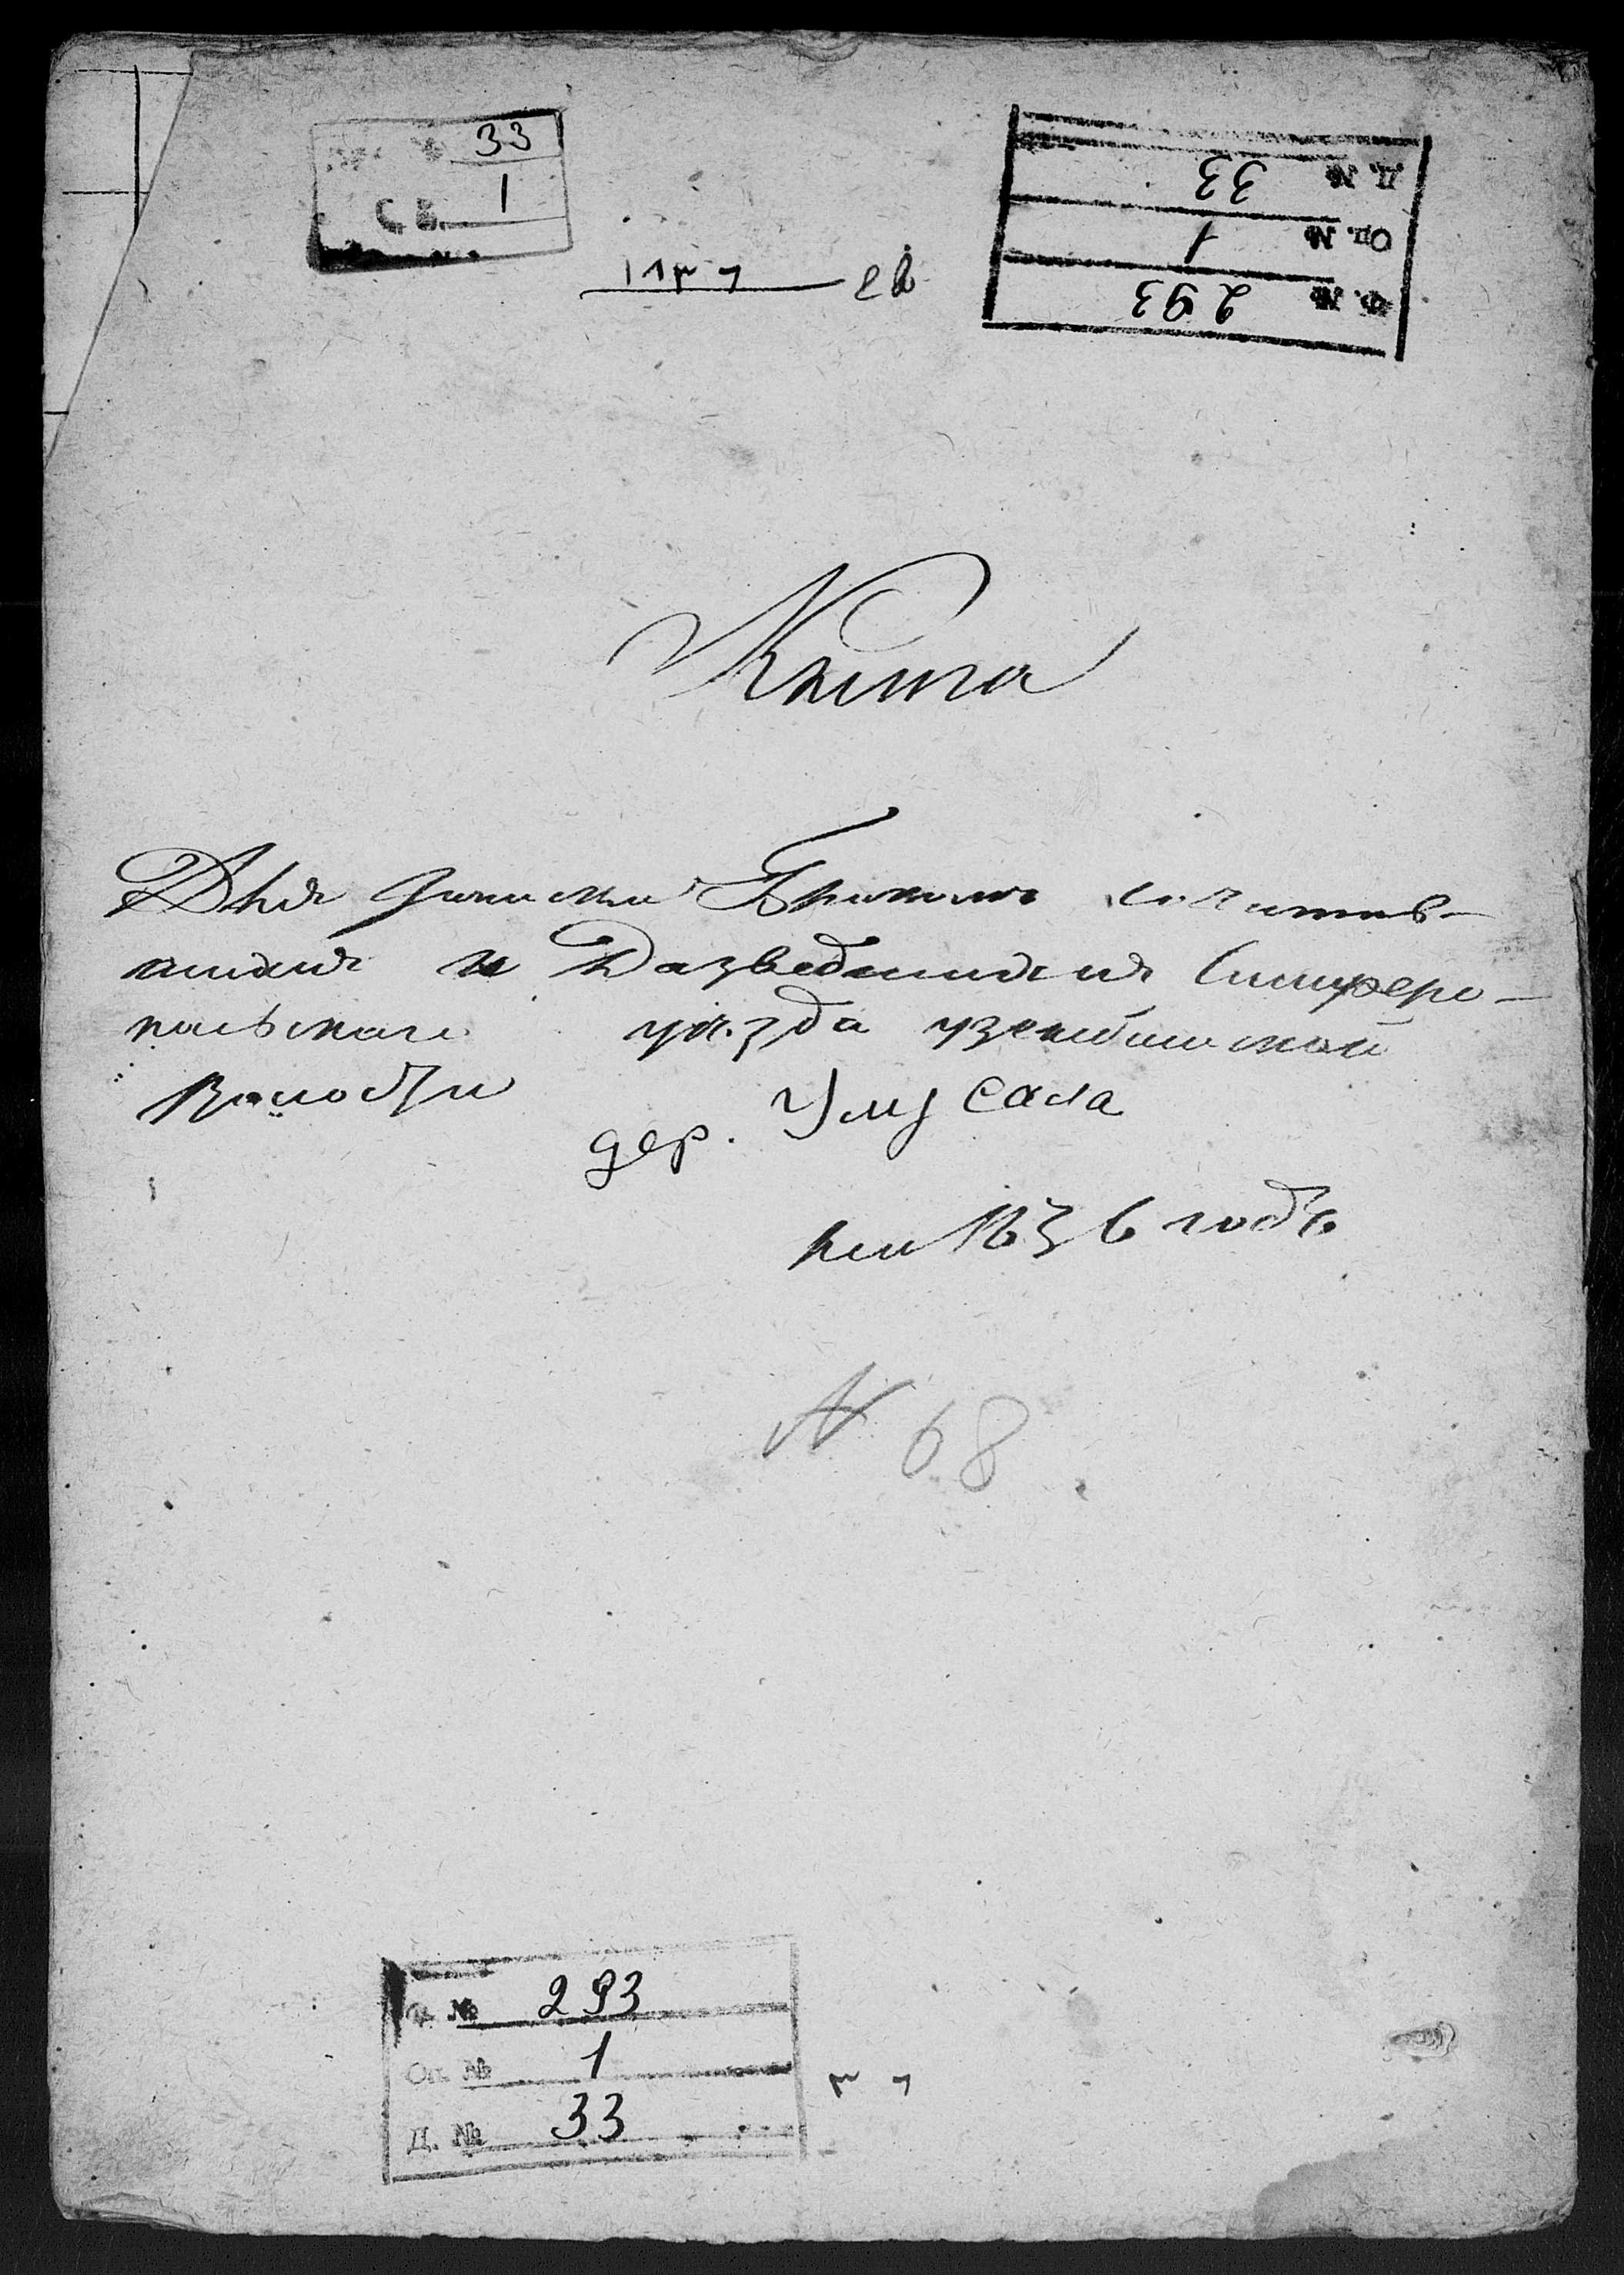 33
С. В. 1
Д. № 33
Оп. № 1
Ф. № 293
Книга
Для записки Браком сочитав-
шихся и Разведшихся Симферо-
польскаго уезда узенбашской
Волости
дер. Улу Сала
на 1836 годъ
N 68
Ф. № 293
Оп. № 1
Д. № 33
٣٦